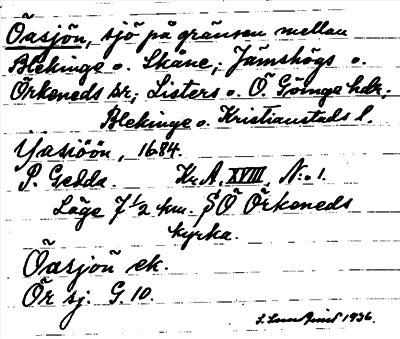 Öasjön, sjö på gränsen mellan
Blekinge o. Skåne, Jämshögs o.
Örkeneds sr; Listers o. Ö. Göinge hdr.
Blekinge o. Kristianstads l.
Yasiöön, 1684.
P. Gedda. Kr. A. XVIII, N:o 1.
Läge 7 1/2 km. SÖ Örkeneds
kyrka.
Öasjön ek.
Ör sj. G. 10.
1936.